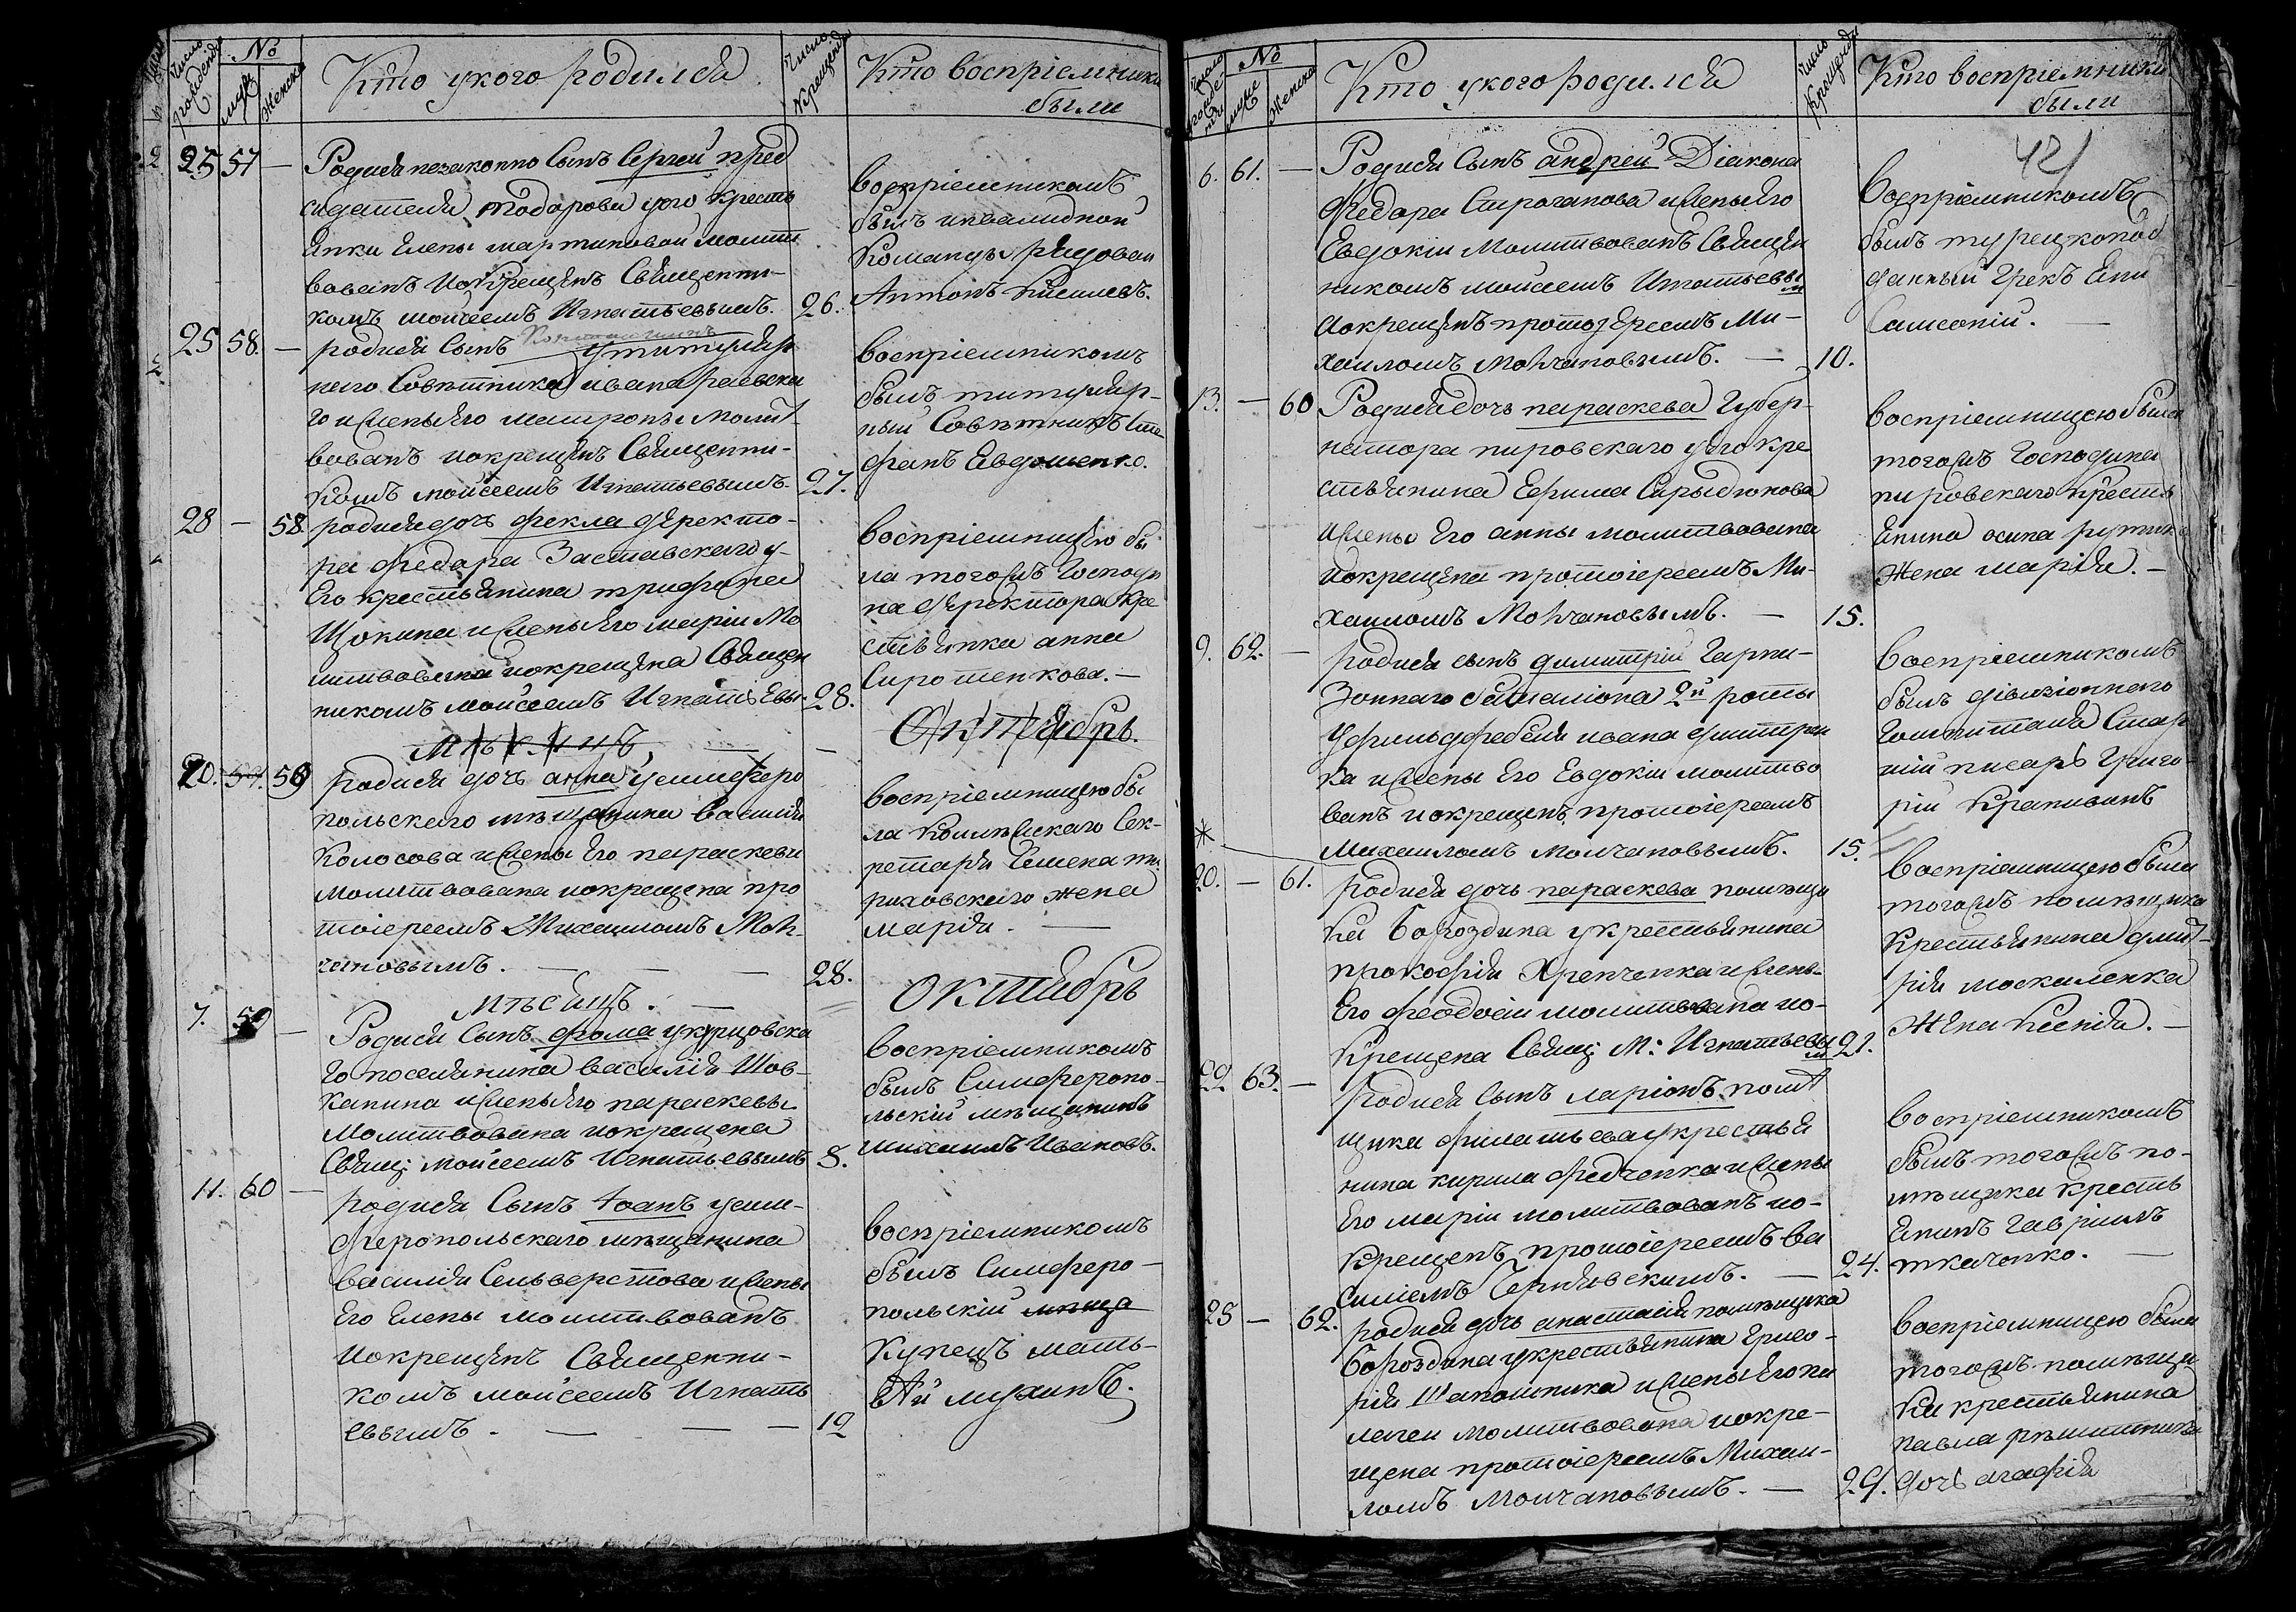 Число рожденія
№
муж
женска
Кто укого родился
Число Крещенія
Кто воспріемники
были
25 57 —
Родился незаконно Сынъ Сергей пред
седателя Тодорова уего кресть
янки Елены мартиновой молит
вованъ иокрещенъ Священни-
комъ моисеемъ Игнатьевымъ. 26.
воспріемникомъ
былъ инвалидной
Команды рядовои
Антонъ Киселевъ.
25 58. —
родился Сынъ Константинъ утитуляр
наго Совѣтника ивана раевска
го иЖены Его матроны молит
вованъ иокрещенъ Священни-
комъ моисеемъ Игнатьевымъ. 27.
воспріемникомъ
былъ титуляр-
ный Совѣтникъ Сте
фанъ Евдошенко.
28 — 58.
родилася дочь фекла директо-
ра федора Заставскаго у
Его крестьянина трифона
Щокина иЖены Его маріи Мо
литвована иокрещена Священ
никомъ моисеемъ Игнатіевы. 28.
воспріемницею бы
ла тогожъ Господи
на директора кре
стьянка анна
Сиротенкова. —
Мѣсяцъ
Октябрь.
20. 57. 59
родилася дочь анна усимферо
польскаго мѣщанина василія
Колосова иЖены Его параскеви
молитвована иокрещена про
тоіереемъ Михаиломъ Мол-
чановымъ. — — — 28.
воспріемницею бы
ла Колѣжскаго Сек-
ретаря
жена
марія. —
мѣсяцъ. —
Октябрь
7. 59 —
Родился Сынъ фома укурцовска
го поселянина василія Шов-
канина иЖены Его параскевы
Молитвована иокрещена
Свящ: моисеемъ Игнатьевымъ 8.
воспріемникомъ
былъ Симферопо-
льскій мѣщанинъ
михаилъ Ивановъ.
11. 60 —
родился Сынъ Іоанъ усим-
феропольскаго мѣщанина
василія Сельверстова иЖены
Его Елены молитвованъ
иокрещенъ Священни-
комъ моисеемъ Игнать
евымъ. — — — 12
воспріемникомъ
былъ Симферо-
польскій мѣща
купецъ мать-
вѣй мухинъ.
Число рожденія
№
муже
Женска
Кто укого родился
Число Крещенія
Кто воспріемники
были
421
6. 61. —
Родился Сынъ андрей Діакона
Федора Спроганова иЖены Его
Евдокіи Молитвованъ Священ
никомъ моисеемъ Игнатьевым
иокрещенъ протоіереемъ Ми-
хаиломъ Молчановымъ. — 10.
Воспріемникомъ
былъ турецкопод
данный Грекъ
Самсоній. —
13. — 60
Родилася дочь параскева Губер-
натора пировскаго уего кре
стьянина Ефима Сарыдюкова
иЖены Его анны молитвована
иокрещена протоіереемъ Ми-
хаиломъ Молчановымъ. — 15.
воспріемницею была
тогожъ Господина
пировскаго кресть
янина осипа
Жена марія. —
9. 62. —
родился сынъ димитрій Гарни-
зоннаго баталіона 2й роты
уфильдфебеля ивана дмитрен
ка иЖены Его Евдокіи молитво
ванъ иокрещенъ, протоіереемъ
Михаиломъ Молчановымъ. 15.
воспріемникомъ
былъ дівизіоннаго
Гошпиталя Стар
шій писарь Григо-
рій Крапиванъ
*
20. — 61.
родился дочь параскева помѣщи
ка Бороздина укрестьянина
прокофія Хренченка иЖены
Его феодосіи молитвована ио-
крещена Свящ: М: Игнатьевым 21.
воспріемницею была
тогожъ помѣщика
крестьянина дмит-
рія москаленка
Жена Ксенія. —
22 63. —
родился Сынъ ларіонъ помѣ
щика филатьева укрестья
нина кирила федченка иЖены
Его маріи молитвованъ ио-
крещенъ, протоіереемъ Ва
силіемъ Чернявскимъ. — 24.
воспріемникомъ
былъ тогожъ по-
мѣщика кресть
янинъ гавріилъ
ткаченко. —
25 — 62.
родился дочь анастасія помѣщика
Бороздина укрестьянина григо-
рія Шапошника иЖены Его пе
лагеи молитвована иокре-
щена протоіереемъ Михаи-
ломъ Молчановымъ. — 29.
воспріемницею была
тогожъ помѣщи
ка крестьянина
павла рѣшитника
дочь агафія